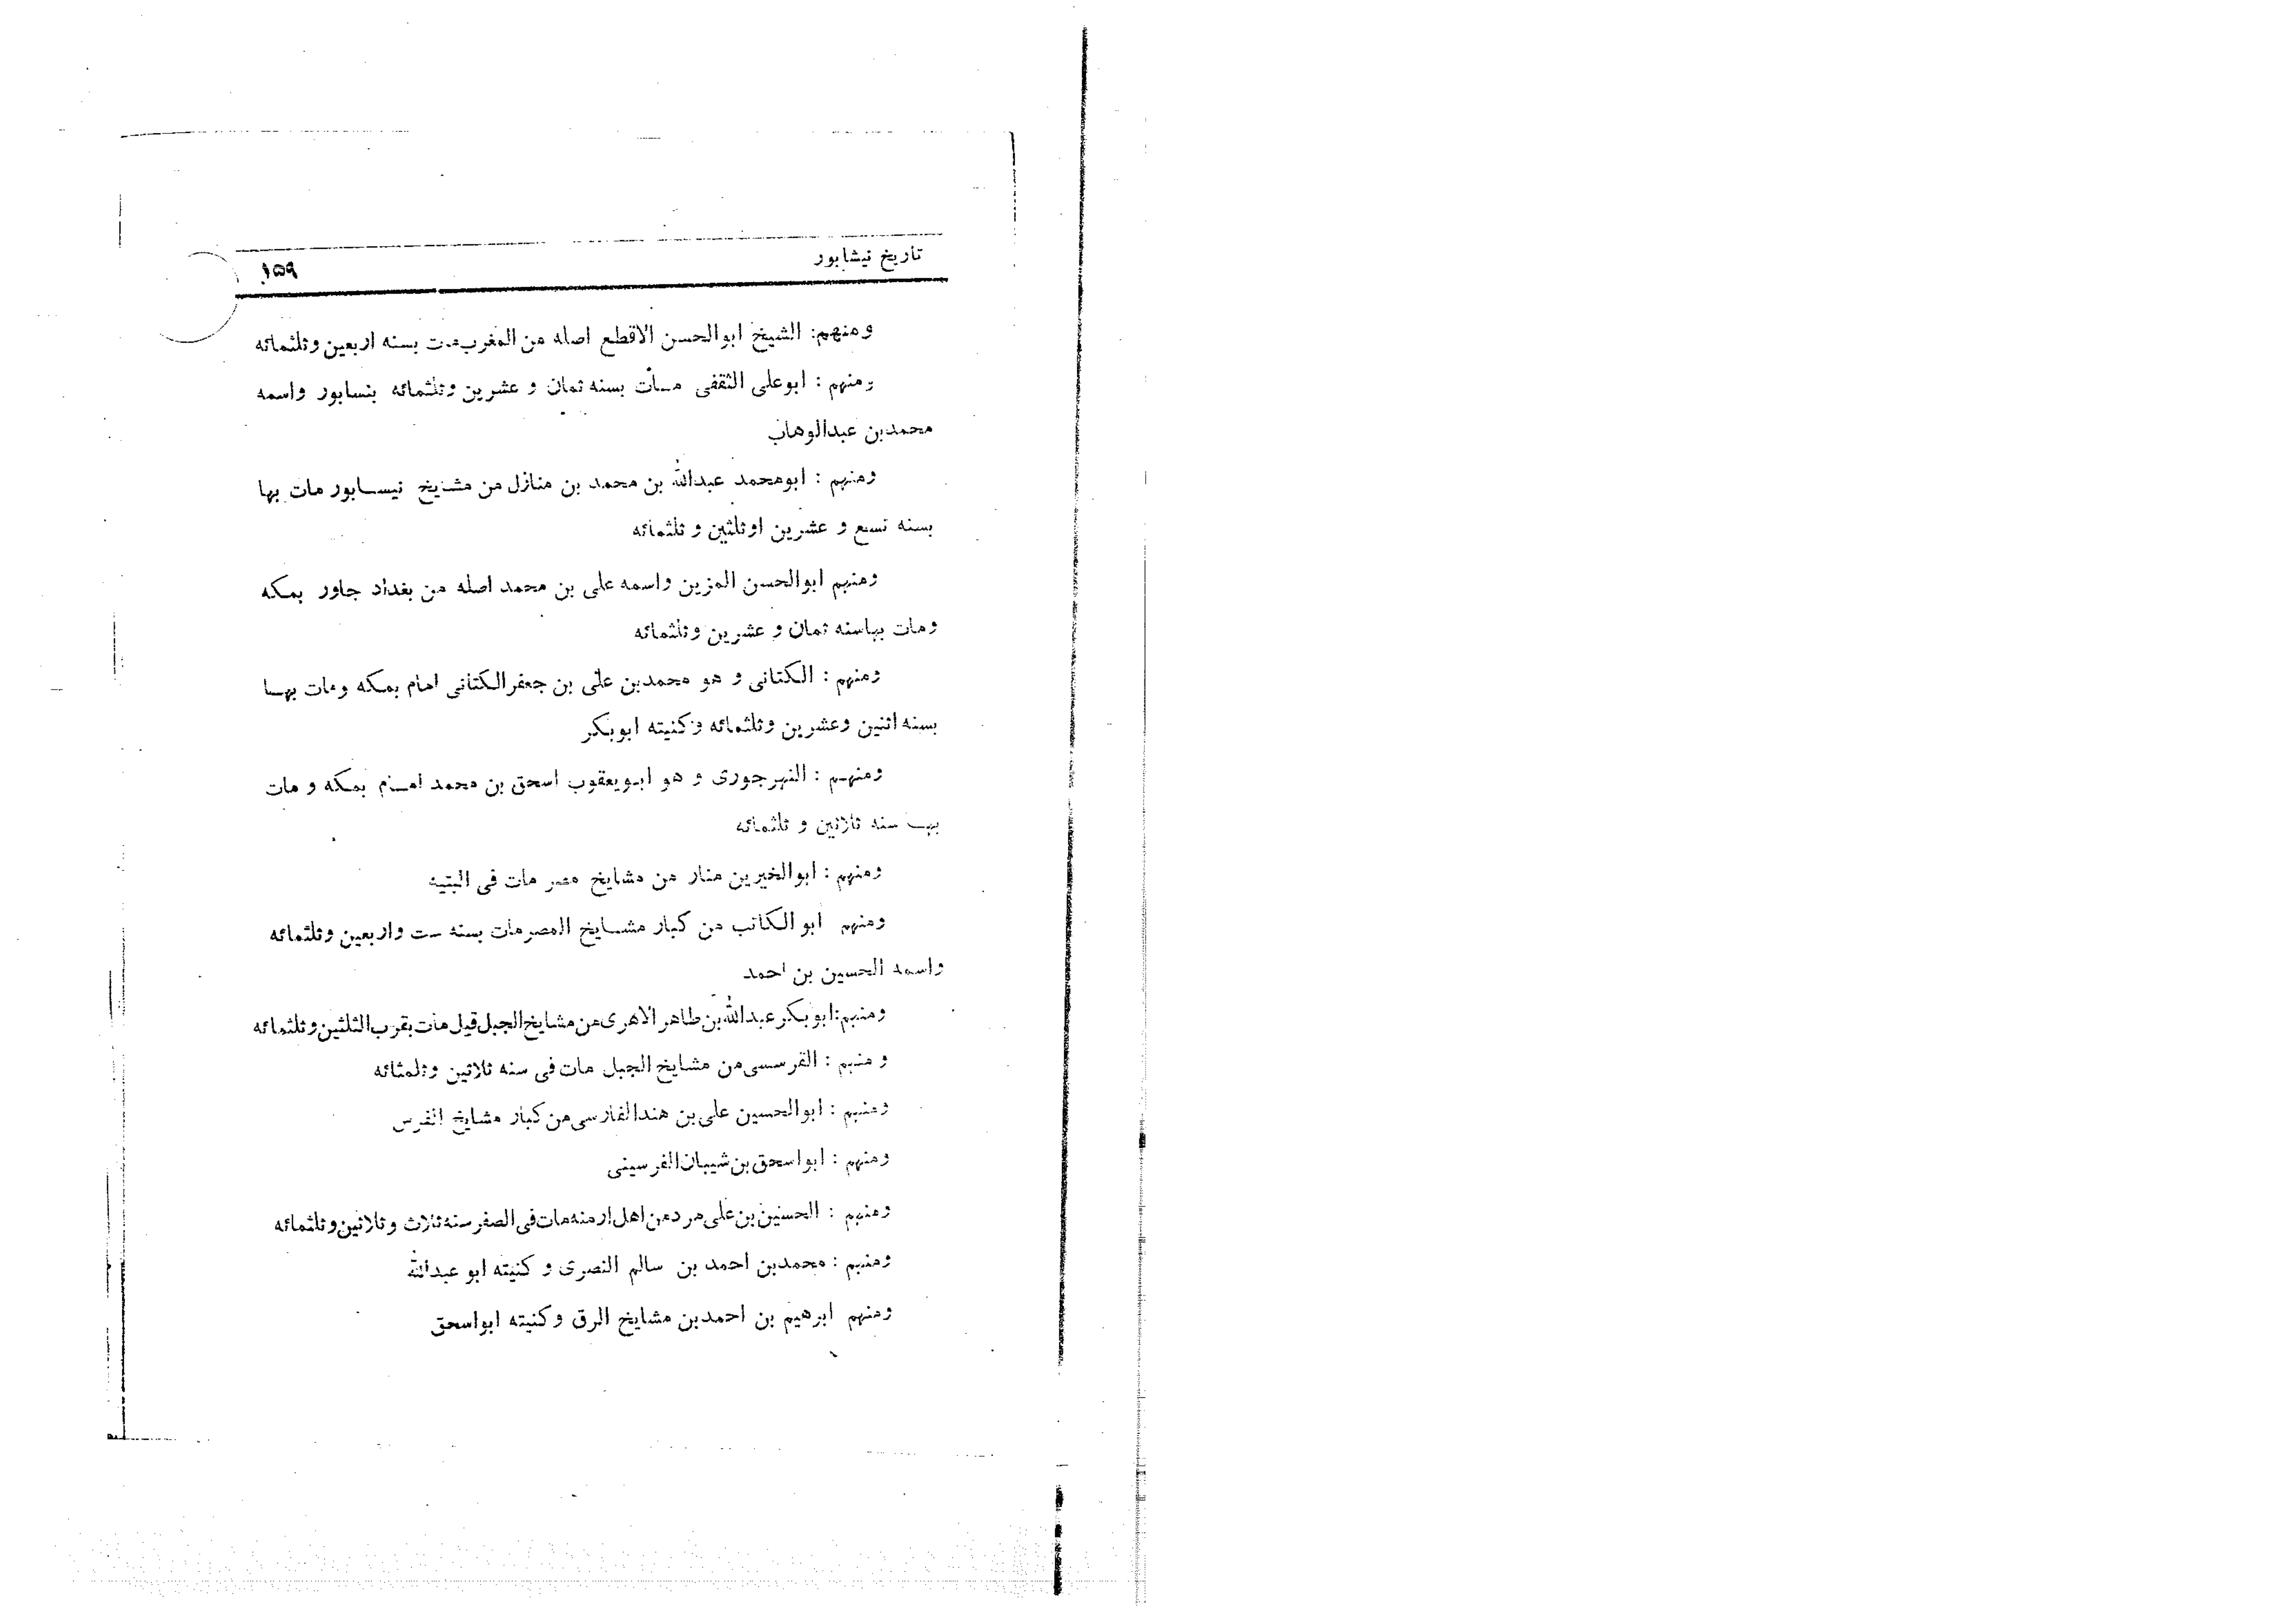 تاریخ نیشابور
۱۵۹
ومنهم: الشیخ ابوالحسن الاقطع اصله من المغرب مات بسنه اربعین وثلثمائه
ومنهم : ابوعلی الثقفی مات بسنه ثمان و عشرین وثلثمائه بنسابور واسمه
محمدبن عبدالوهاب
ومنهم : ابومحمد عبدالله بن محمد بن منازل من مشایخ نیسابور مات بها
بسنه تسع و عشرین اوثلثین و ثلثمائه
ومنهم ابوالحسن المزین واسمه علی بن محمد اصله من بغداد جاور بمکه
ومات بهاسنه ثمان و عشرین وثلثمائه
ومنهم : الکتانی و هو محمدبن علی بن جعفرالکتانی امام بمکه ومات بها
بسنه اثنین وعشرین وثلثمائه وکنیته ابوبکر
ومنهم : النهرجوری و هو ابویعقوب اسحق بن محمد امام بمکه و مات
بها سنه ثلاثین و ثلثمائه
ومنهم : ابوالخیربن منار من مشایخ مصر مات فی البتیه
ومنهم ابو الکاتب من کبار مشایخ المصرمات بسنه ست واربعین وثلثمائه
واسمه الحسین بن احمد
ومنهم:ابوبکر عبدالله بن طاهر الاهری من مشایخ الجبل قیل مات بقرب الثلثین وثلثمائه
ومنهم : القرسسی من مشایخ الجبل مات فی سنه ثلاثین وثلمثائه
ومنهم : ابوالحسین علی بن هندالفارسی من کبار مشایخ الفرس
ومنهم : ابواسحق بن شیبان الفرسینی
ومنهم : الحسین بن علی مردمن اهل ارمنه مات فی الصفر سنه ثلاث وثلاثین وثلثمائه
ومنهم : محمدبن احمد بن سالم النصری و کنیته ابو عبدالله
ومنهم ابرهیم بن احمدبن مشایخ الرق وکنیته ابواسحق